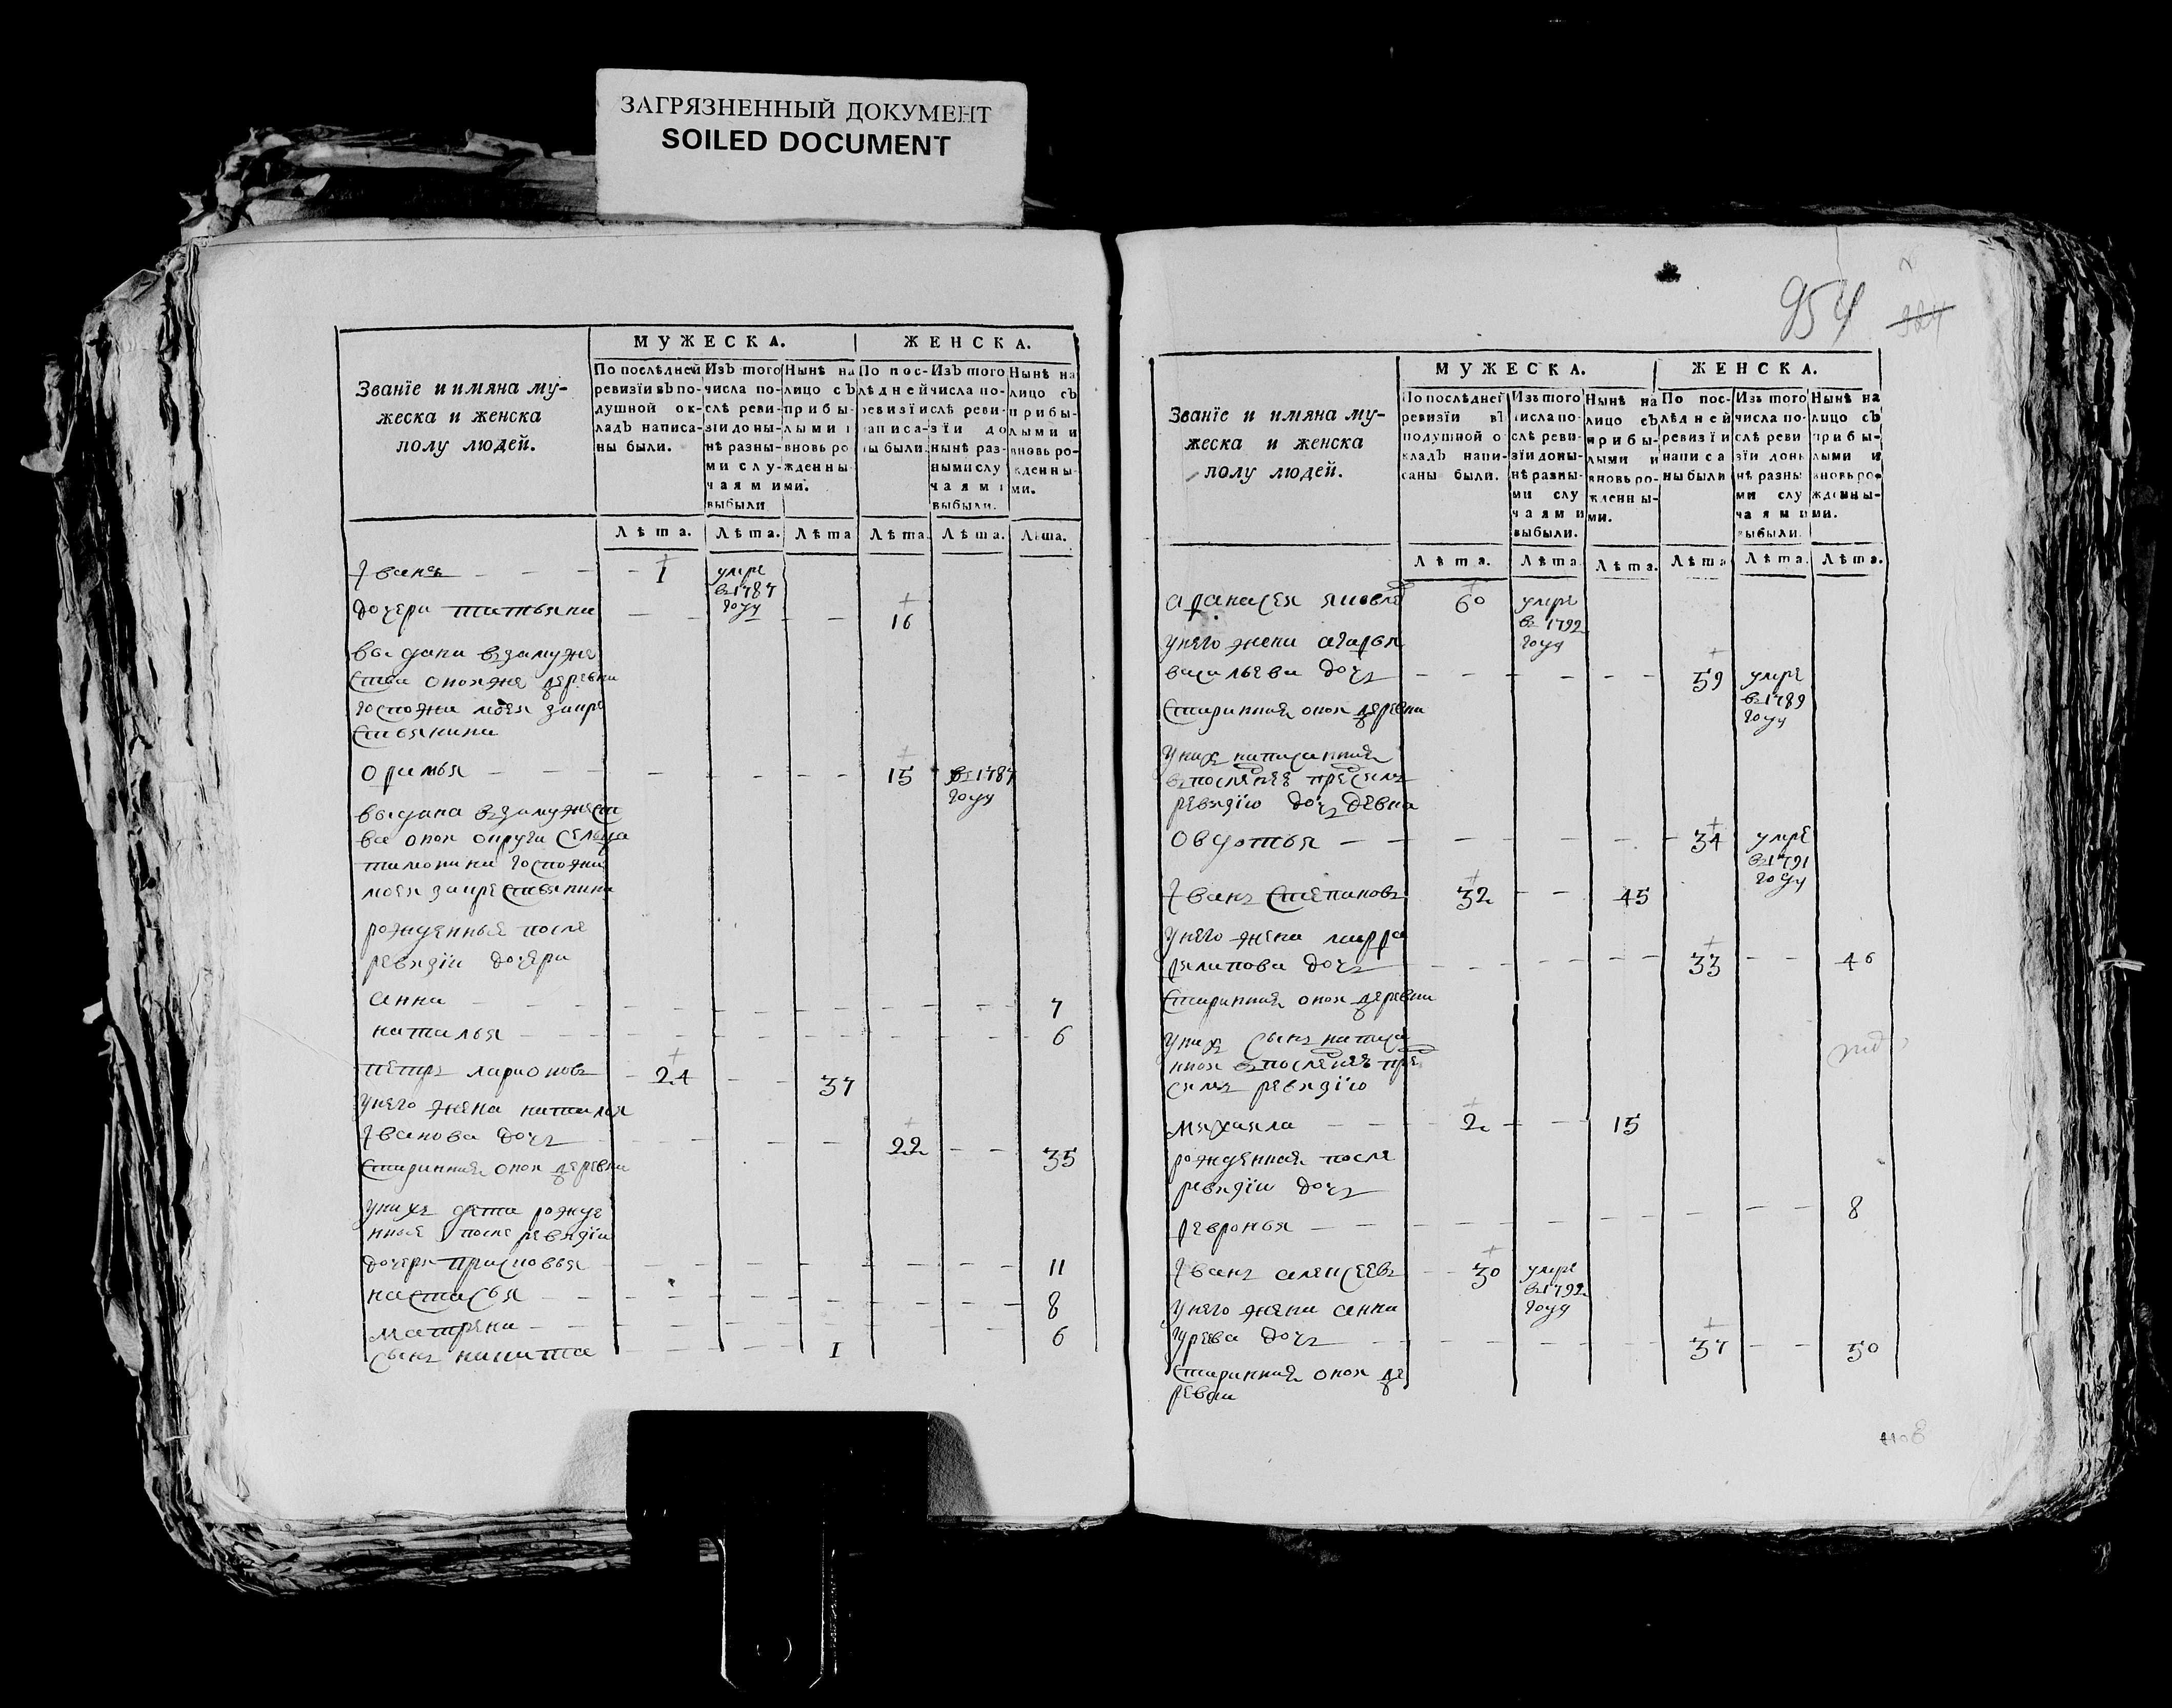 ЗАГРЯЗНЕННЫЙ ДОКУМЕНТ
SOILED DOCUMENT
Званїе и имяна му-
жеска и женска
полу людей.
МУЖЕСКА.
ЖЕНСКА.
По послѣдней
ревизїи въ по-
душной ок-
ладъ написа-
ны были.
Изъ того
числа по-
слѣ реви-
зїи доны-
нѣ разны-
ми слу-
чаями
выбыли
Нынѣ на
лицо съ
прибы-
лыми и
вновь ро
жденны
ми.
По пос-
лѣдней
ревизїи
написа-
ны были.
Изъ того
числа по-
слѣ реви-
зїи до
нынѣ раз-
ными слу
чаями
выбыли.
Нынѣ на
лицо съ
прибы-
лыми и
вновь ро-
жденны-
ми.
Лѣта. Лѣта. Лѣта Лѣта. Лѣта. Лѣта.
Иванъ 1 умре
в 1787
году
дочери татьяна 16
выдана взамуже
ства оной же деревни
госпожи моея за кре
стьянина
Офимья 15 в 1787
году
выдана взамужест
ва оной округи сельца
госпожи
моея за крестьянина
рожденные после
ревизїи дочери
анна 7
наталья 6
петръ ларионовъ 24 37
унего жена наталья
Иванова дочь 22 35
старинная оной деревни
унихъ дети рожде
нные после ревизїи
дочери прасковья 11
настасья 8
матрена 6
сынъ никита 1
954
324
Званїе и имяна му-
жеска и женска
полу людей.
МУЖЕСКА.
ЖЕНСКА.
По послѣдней
ревизїи въ
подушной о
кладъ напи-
саны были.
Изъ того
числа по-
слѣ реви-
зїи доны-
нѣ разны-
ми слу
чаями
выбыли.
Нынѣ на
лицо съ
прибы-
лыми и
вновь ро-
жденны-
ми.
По пос-
лѣдней
ревизїи
написа
ны были
Изъ того
числа по-
слѣ реви
зїи донь
нѣ разны
ми слу
чаями
выбыли.
Нынѣ на
лицо съ
прибы-
лыми и
вновь ро-
жденны-
ми.
Лѣта. Лѣта Лѣта. Лѣта Лѣта. Лѣта.
афанасея яковле 60 умре
в 1792
году
унего жена агафья
васильева дочь 59 умре
в 1789
году
старинная оной деревни
унихъ написанная
впоследнею пресимъ
ревизїю дочь девка
Овдотья 34 умре
в 1791
году
Иванъ степановъ 32 45
унего жена марфа
филипова дочь 33 46
старинная оной деревни
унихъ сынъ написа
нной впоследнею пре
симъ ревизїю
михайла 2 15
рожденная после
ревизїи дочь
февронья 8
Иванъ алексеевъ 30 умре
в 1792
году
унего жена анна
гурева дочь 37 50
старинная оной де
ревни